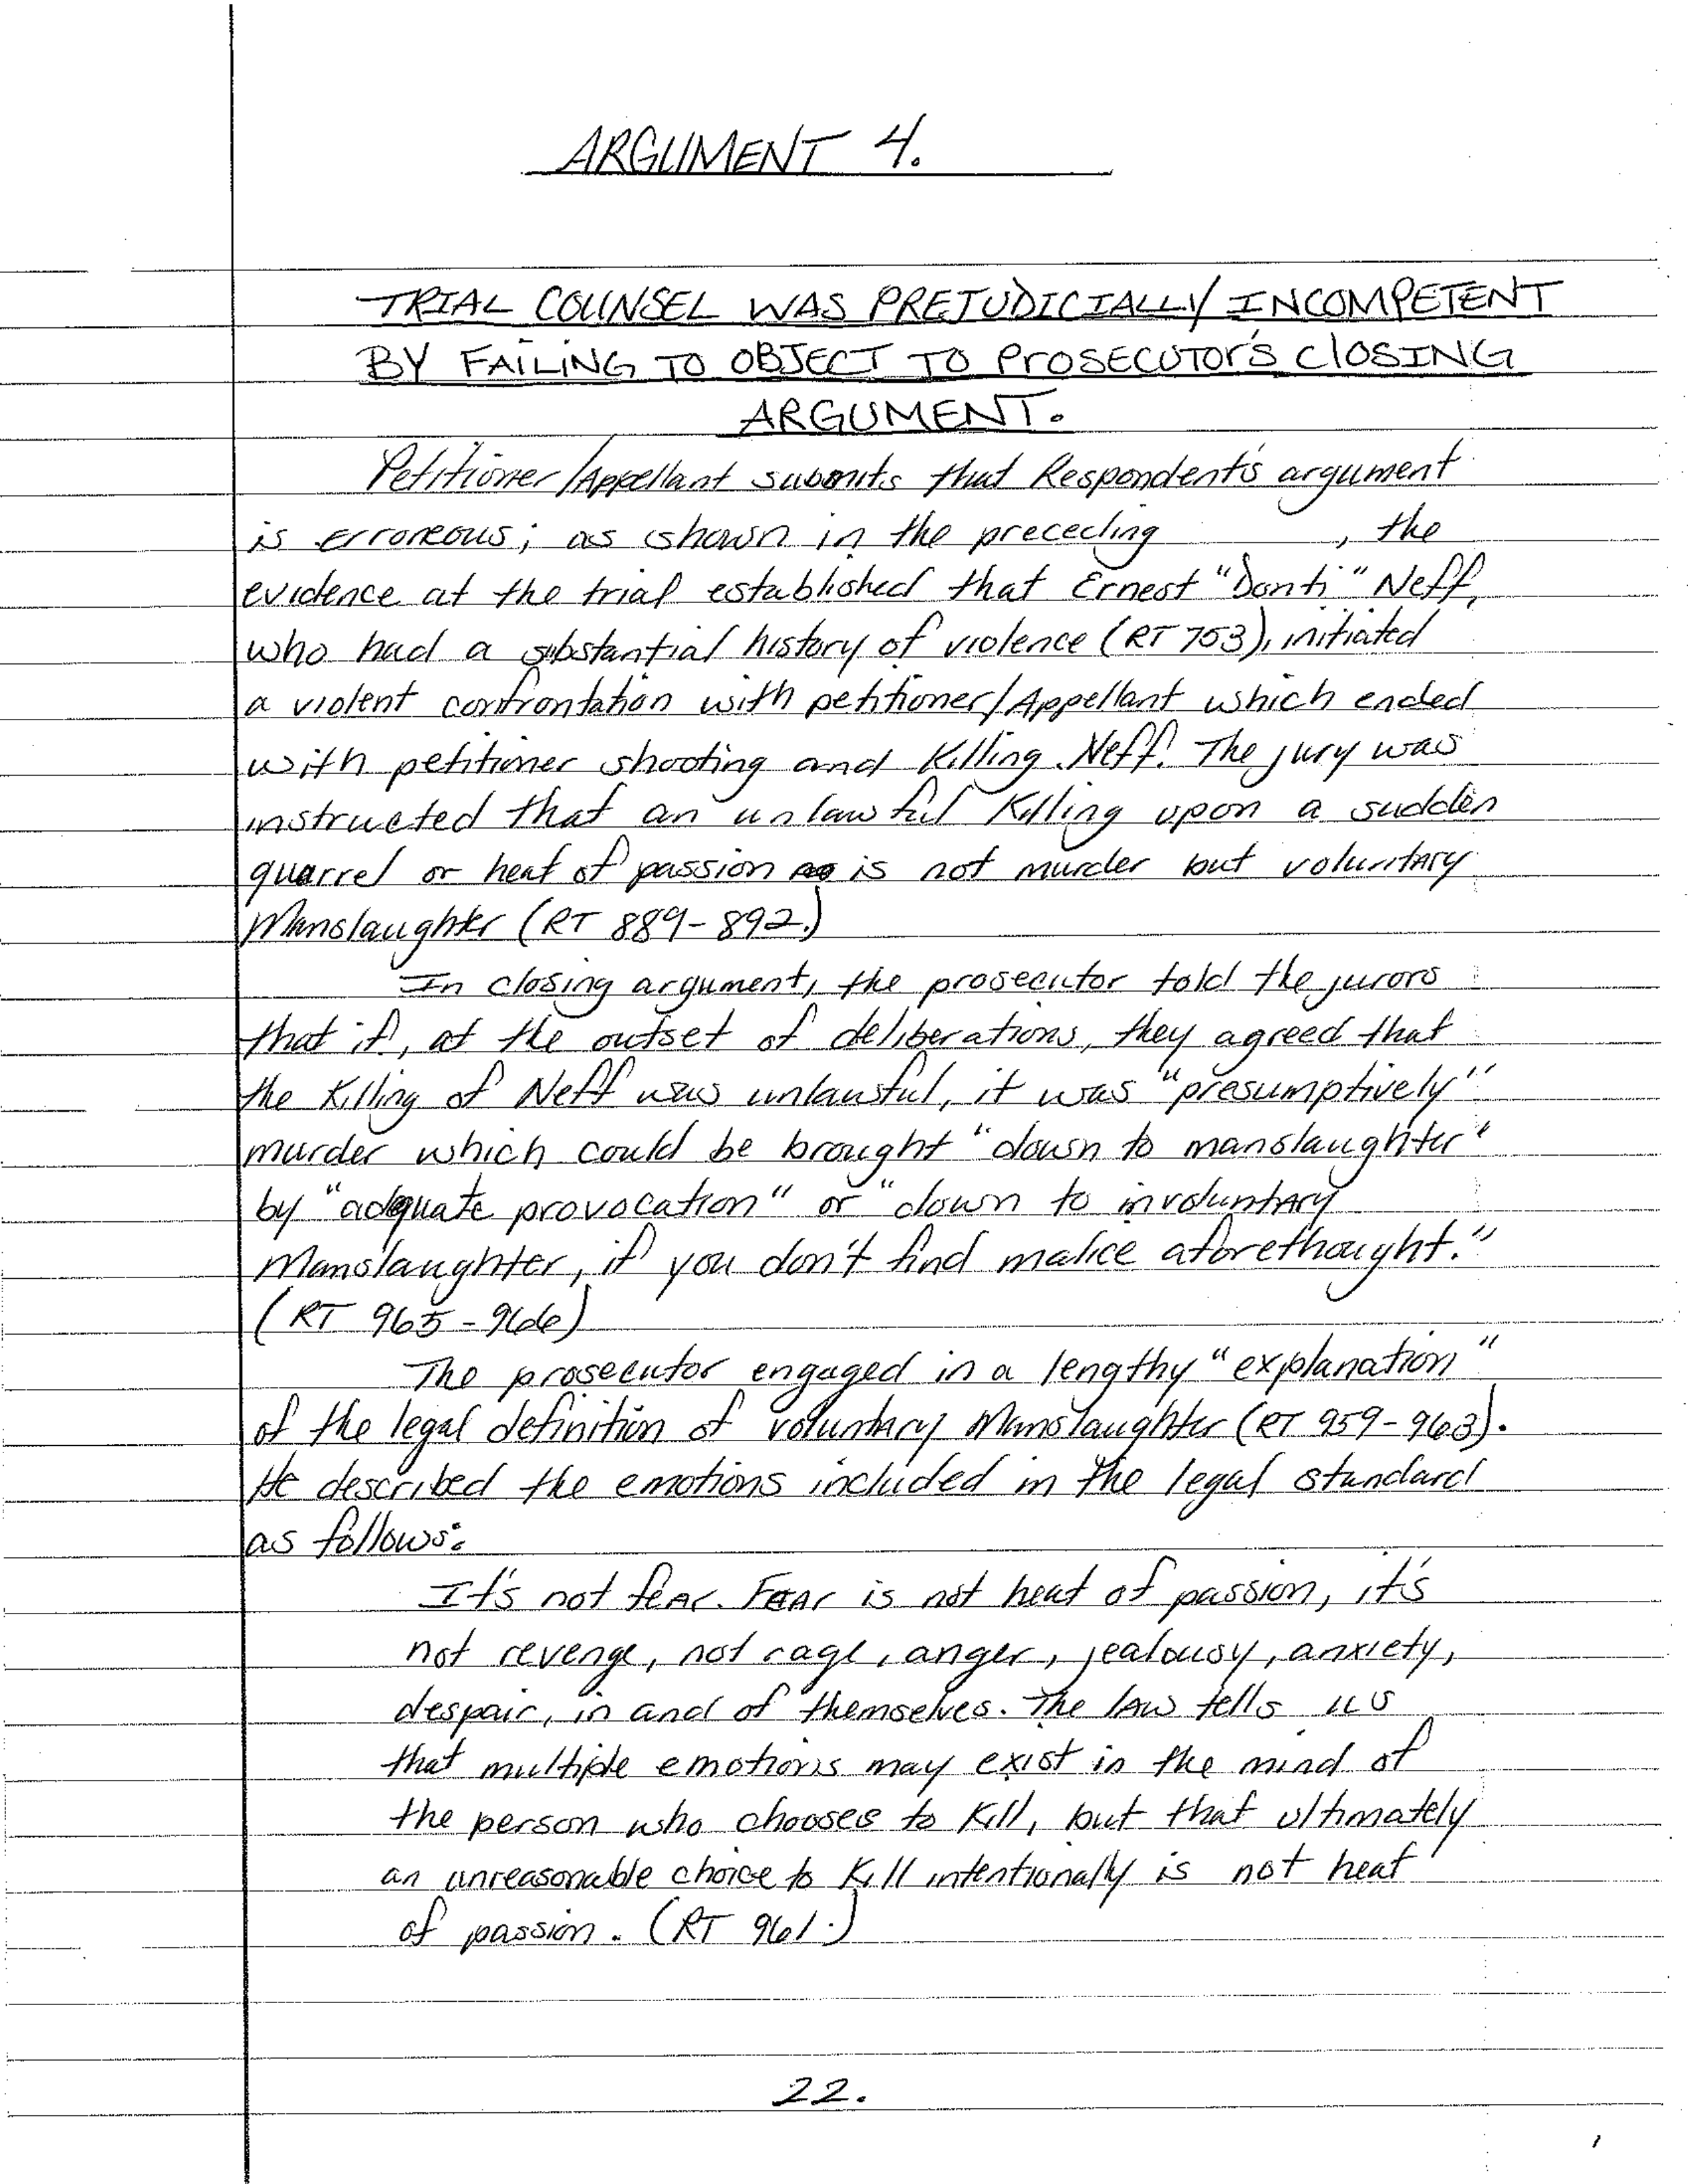 ARGUMENT 4.
TRIAL COUNSEL WAS PREJUDICIALLY INCOMPETENT
BY FAILING TO OBJECT TO PROSECUTOR'S CLOSING
ARGUMENT.
Petitioner/Appellant submits that Respondent's argument
is erroneous; as shown in the preceding , the
evidence at the trial established that Ernest "Donti" Neff,
who had a substantial history of violence (RT 753), initiated
a violent confrontation with petitioner/Appellant which ended
with petitioner shooting and killing Neff. The jury was
instructed that an unlawful killing upon a sudden
quarrel or heat of passion is not murder but voluntary
Manslaughter (RT 889-892.)
In closing argument, the prosecutor told the jurors
that if, at the outset of deliberations, they agreed that
the killing of Neff was unlawful, it was "presumptively"
murder which could be brought "down to manslaughter"
by "adquate provocation" or "down to involuntary
Manslaughter, if you don't find malice aforethought."
(RT 965-966)
The prosecutor engaged in a lengthy "explanation"
of the legal definition of voluntary Manslaughter (RT 959-963).
He described the emotions included in the legal standard
as follows:
It's not fear. Fear is not heat of passion, it's
not revenge, not rage, anger, jealousy, anxiety,
despair, in and of themselves. The law tells us
that multiple emotions may exist in the mind of
the person who chooses to kill, but that ultimately
an unreasonable choice to kill intentionally is not heat
of passion. (RT 961.)
22.